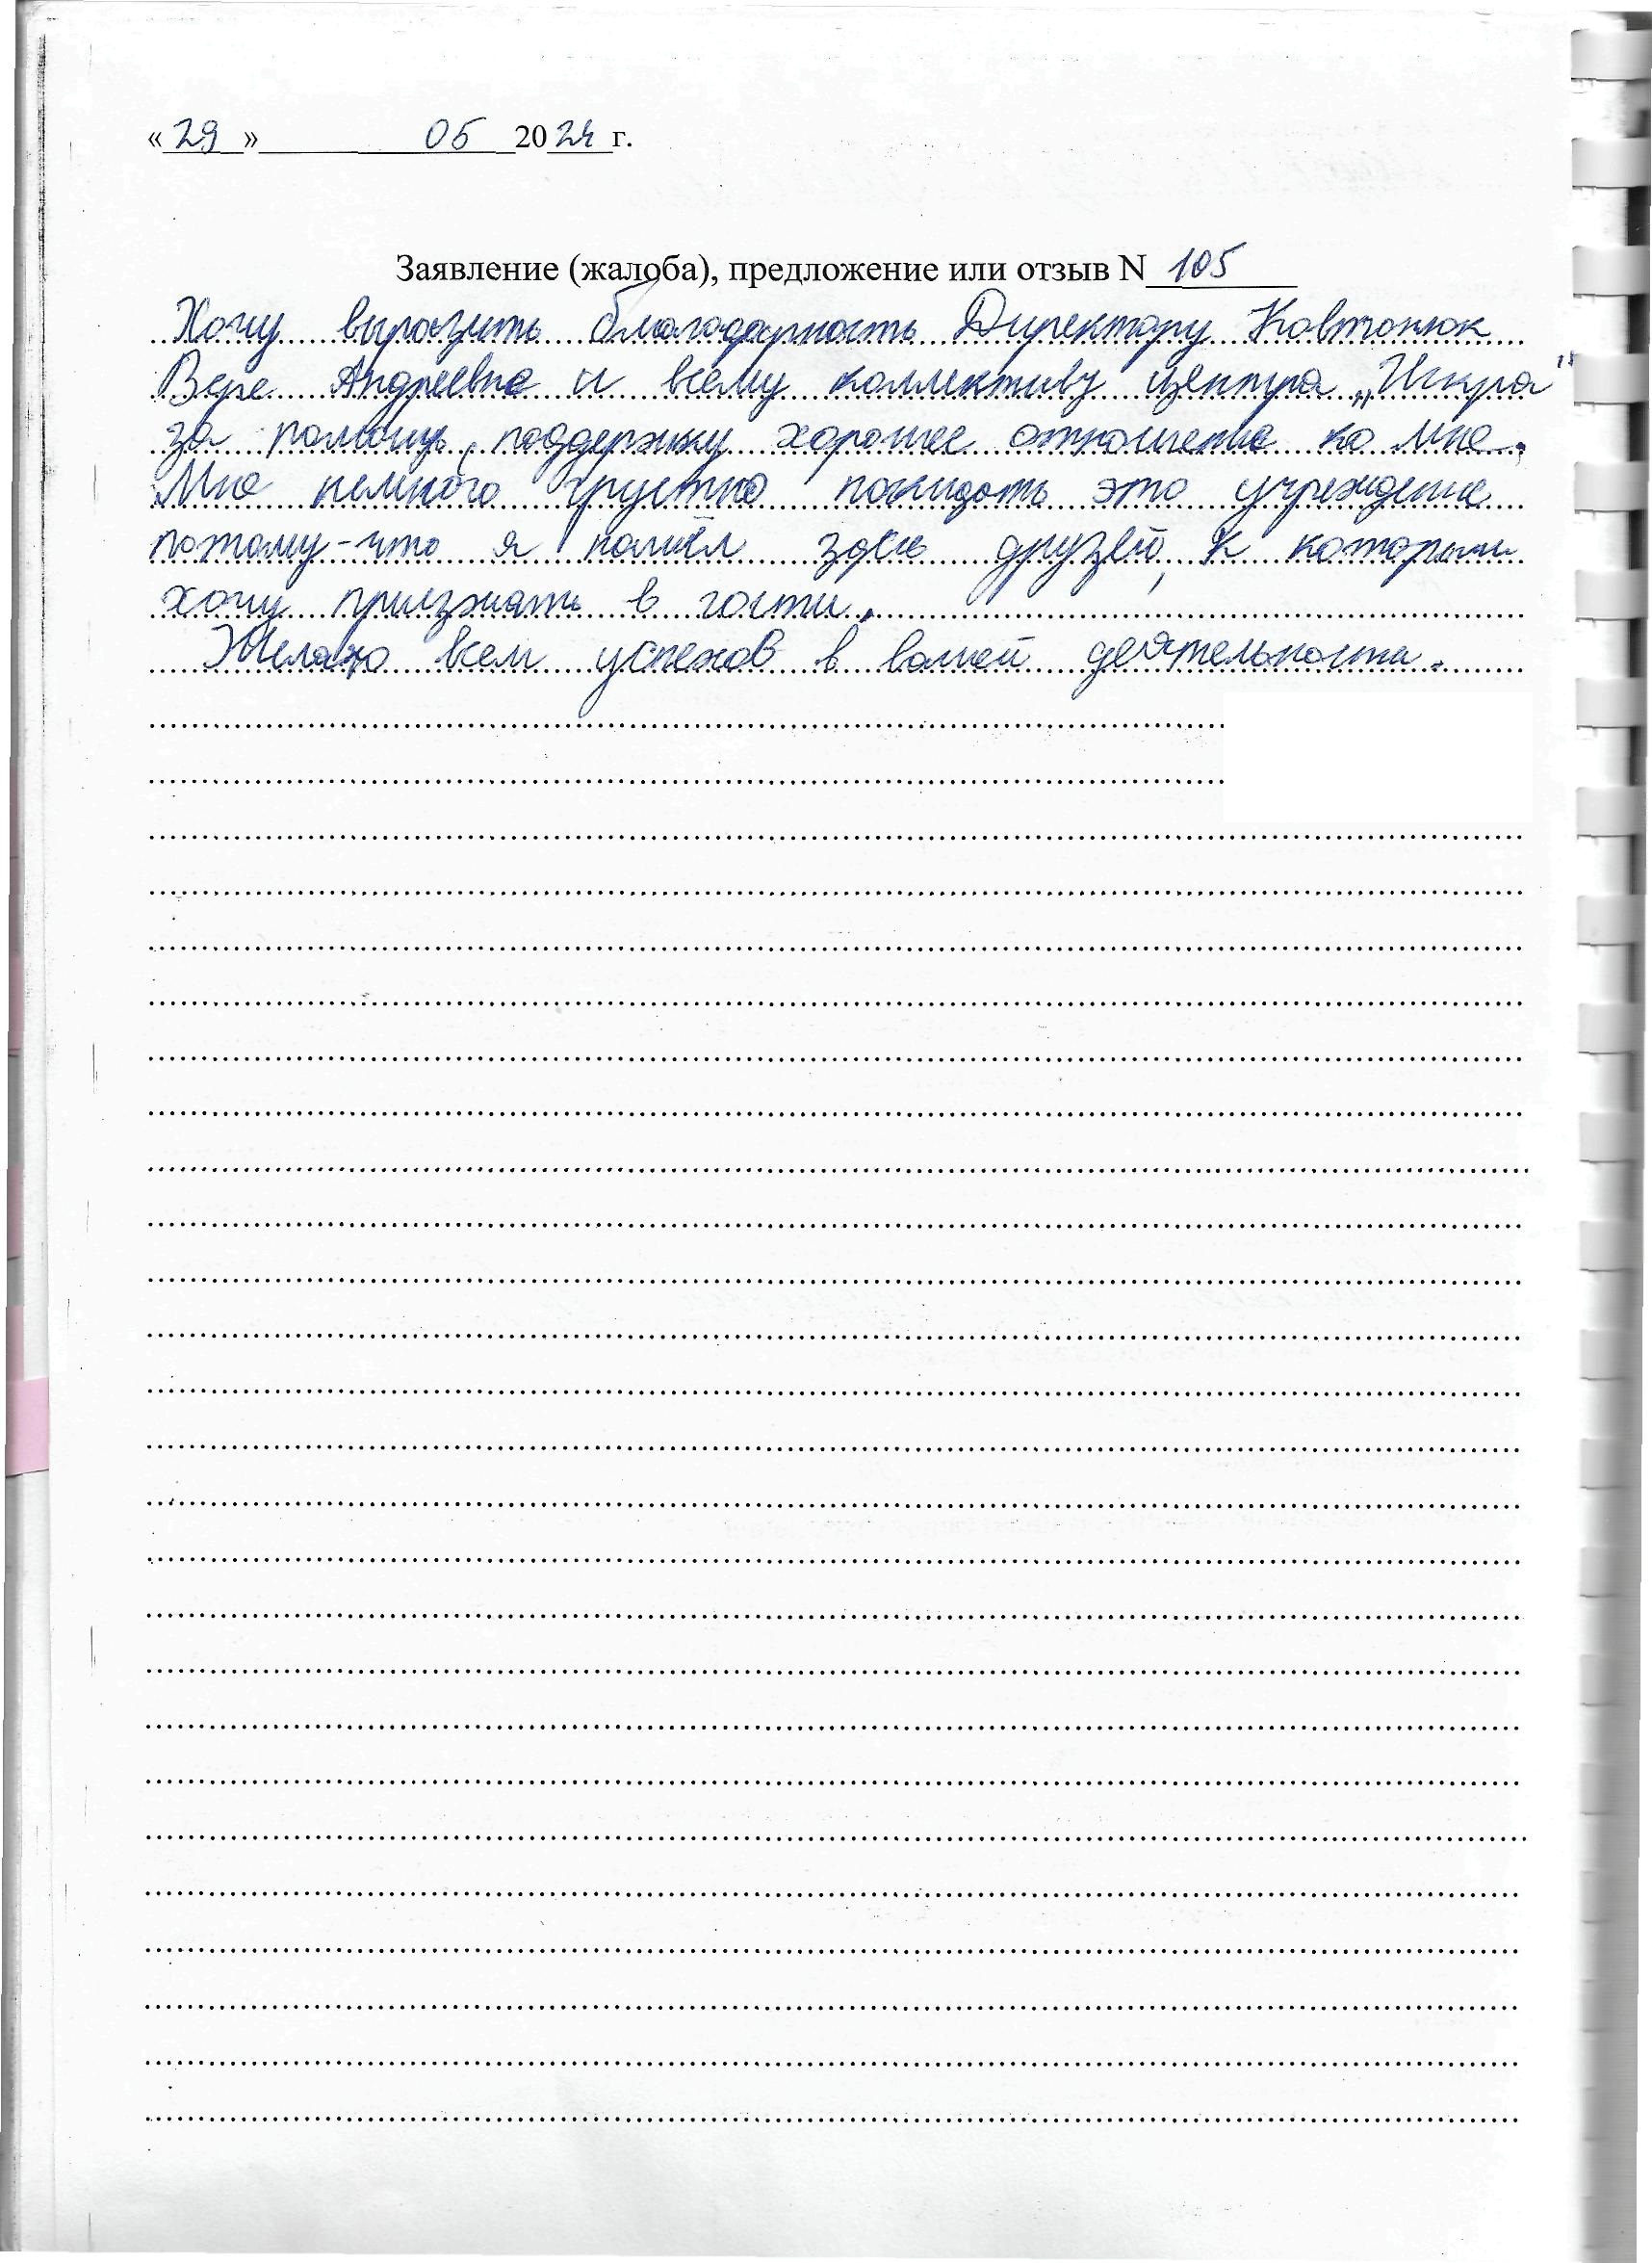 « 29 » 05 2024 г.
Заявление (жалоба), предложение или отзыв N 105
Хочу выразить благодарность Директору Ковтонюк
Вере Андреевне и всему коллективу центра „Искра"
за помощь, поддержку хорошее отношение ко мне.
Мне немного грустно покидать это учреждение
потому-что я нашёл здесь друзей, к которым
хочу приезжать в гости.
Желаю всем успехов в вашей деятельности.